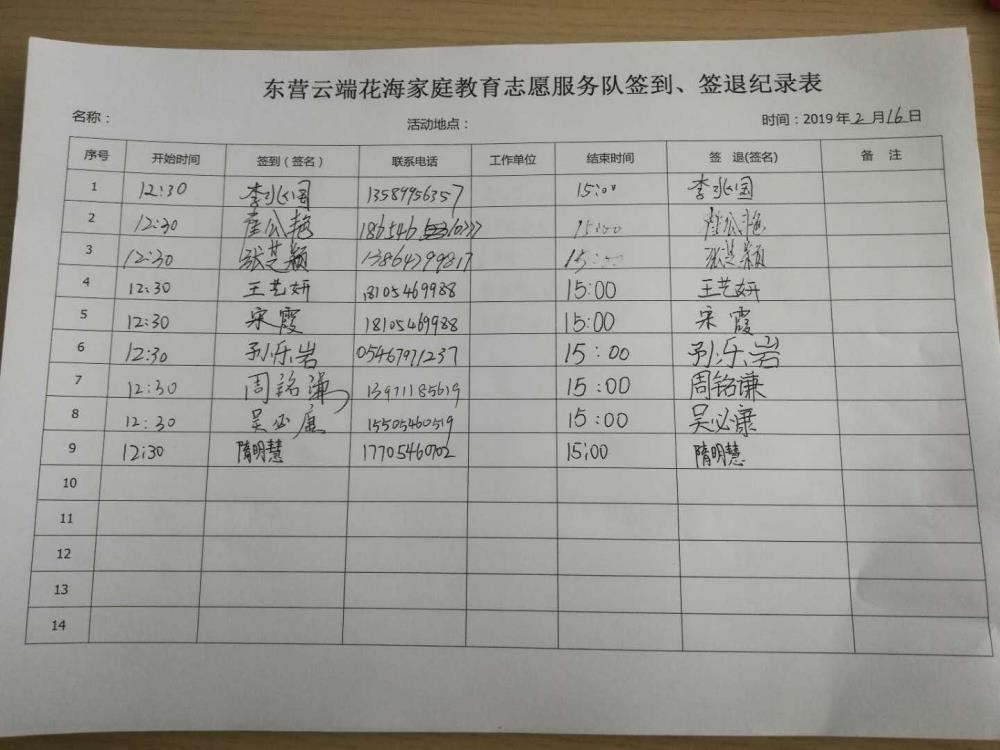 东营云端花海家庭教育志愿服务队签到、签退纪录表
名称：
活动地点：
时间：2019年2月16日
序号 开始时间 签到（签名） 联系电话 工作单位 结束时间 签 退(签名) 备 注
1 12:30 李兆国 13589956357 15:00 李兆国
2 12:30 15:00
3 12:30 张芝颖 13864799817 15:00 张芝颖
4 12:30 王艺妍 18105469988 15:00 王艺妍
5 12:30 宋霞 18105469988 15:00 宋霞
6 12:30 孙乐岩 05467971237 15:00 孙乐岩
7 12:30 周铭谦 13971185619 15:00 周铭谦
8 12:30 吴必廉 15505460519 15:00 吴必廉
9 12:30 隋明慧 17705460702 15:00 隋明慧
10
11
12
13
14